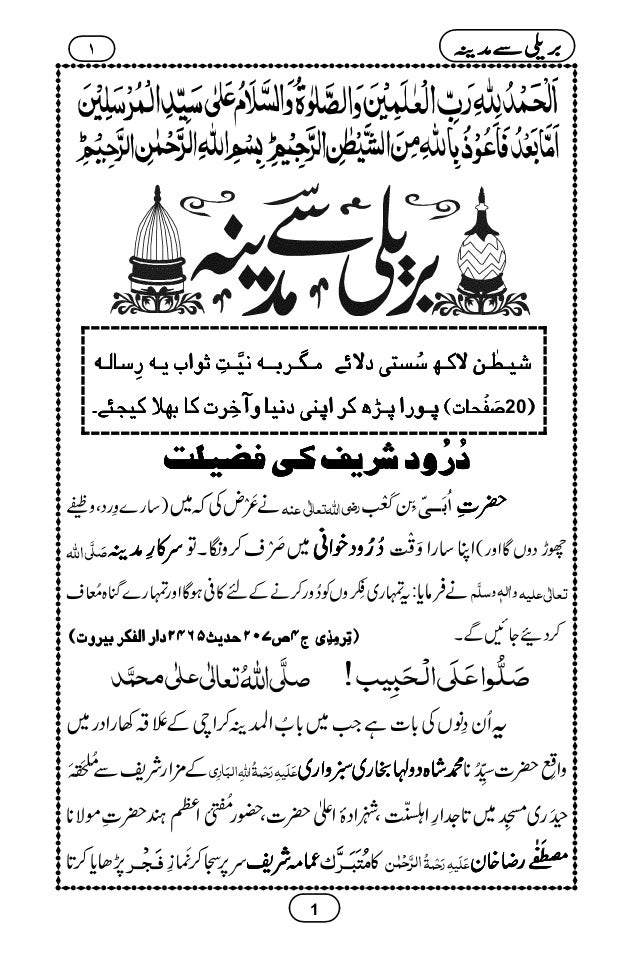 بریلی سے مدینہ
۱
اَلْحَمْدُ لِلّٰهِ رَبِّ الْعٰلَمِیْنَ وَالصَّلٰوةُ وَالسَّلَامُ عَلٰی سَیِّدِ الْمُرْسَلِیْنَ
اَمَّا بَعْدُ فَاَعُوْذُ بِاللّٰهِ مِنَ الشَّیْطٰنِ الرَّجِیْمِؕ بِسْمِ اللّٰهِ الرَّحْمٰنِ الرَّحِیْمِؕ
بریلی سے مدینہ
شیطٰن لاکھ سُستی دلائے مگر بہ نیّتِ ثواب یہ رِسالہ
(20صَفْحات) پورا پڑھ کر اپنی دنیا وآخِرت کا بھلا کیجئے۔
دُرُود شریف کی فضیلت
حضرتِ اُبَیّ بِن کَعْب رضی اللہ تعالیٰ عنہ نے عَرْض کی کہ میں (سارے وِرد، وظیفے
چھوڑ دوں گا اور) اپنا سارا وَقْت دُرُود خوانی میں صَرْف کرونگا۔ تو سرکارِ مدینہ صَلَّی اللہ
تعالیٰ علیہ واٰلہٖ وسلَّم نے فرمایا: یہ تمہاری فِکروں کو دُور کرنے کے لئے کافی ہوگا اور تمہارے گناہ مُعاف
کردیئے جائیں گے۔ (تِرمِذی ج۴ص۲۰۷حدیث۲۴۶۵دار الفکر بیروت)
صَلُّوا عَلَی الْحَبِیب! صلَّی اللّٰهُ تعالٰی علٰی محمَّد
یہ اُن دِنوں کی بات ہے جب میں بابُ المدینہ کراچی کے علاقہ کھارادر میں
واقِع حضرت سیِّدُنا محمد شاہ دولہا بخاری سبزواری عَلَیْہِ رَحْمَۃُ اللہِ الْبَارِی کے مزار شریف سے مُلْحَقہ
حیدَری مسجِد میں تاجدارِ اہلسنّت، شہزادۂ اعلیٰ حضرت، حضور مُفتیِ اعظم ہند حضرتِ مولانا
مصطَفٰے رضا خان عَلَیْہِ رَحْمَۃُ الرَّحْمٰن کا مُتَبَرَّک عمامہ شریف سر پر سجا کر نَمازِ فَجْر پڑھایا کرتا
1